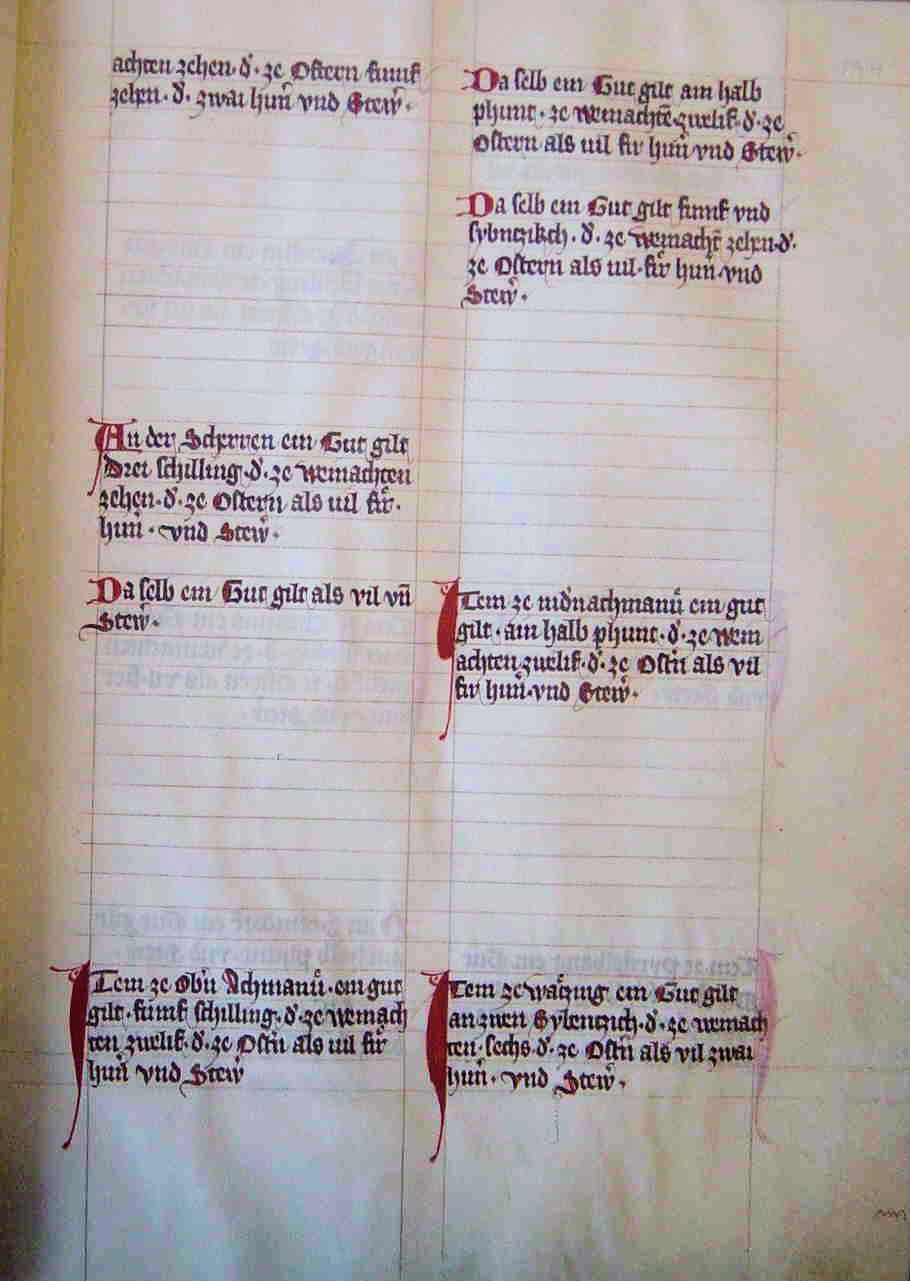 achten zehen · d̄ · ze Ostern fumf
zehen · d̄ · zwai hun̄ vnd Stew̄ ·
An der Scherren ein Gut gilt
drei schilling · d̄ · ze weinachten
zehen · d̄ · ze Ostern als uil fir̄ ·
hun̄ · vnd Stew̄ ·
Da selb ein Gut gilt als vil vn̄
Stew̄ ·
Item ze Obn̄ Achmanū · ein gut
gilt · fumf schilling · d̄ · ze weinach
ten zwelif · d̄ · ze Ostn̄ als uil fir̄
hun̄ vnd Stew̄
Da selb ein Gut gilt ain halb
phunt · ze weinachtē zwelif · d̄ · ze
Ostern als uil fir hun̄ vnd Stew̄ ·
Da selb ein Gut gilt fumf vnd
sybntzikch · d̄ · ze weinacht̄ zehen · d̄ ·
ze Ostern als uil · fir̄ hun̄ · vnd
Stew̄ ·
Item ze nid̄nachmanū ein gut
gilt · ain halb phunt · d̄ · ze wein
achten zwelif · d̄ · ze Ostn̄ als vil
fir hun̄ · vnd Stew̄ ·
Item ze ein Gut gilt
an zwen Sybentzich · d̄ · ze weinach
ten · sechs · d̄ · ze Ostn̄ als vil zwai
hun̄ · vnd Stew̄ ·